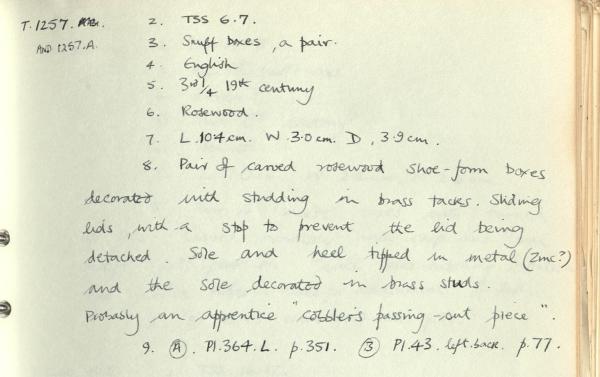 T.1257. 2. TSS 6.7.
AND 1257.A. 3. Snuff boxes, a pair.
4. English
5. 3rd 1/4 19th century
6. Rosewood.
7. L. 10.4cm. W. 3.0cm. D, 3.9cm.
8. Pair of carved rosewood shoe-form boxes
decorated with studding in brass tacks. Sliding
lids, with a stop to prevent the lid being
detached. Sole and heel tipped in metal (zinc?)
and the sole decorated in brass studs.
Probably an apprentice "cobbler's passing-out piece".
9. (A). Pl.364.L. p.351. (3) Pl.43. left.back. p.77.